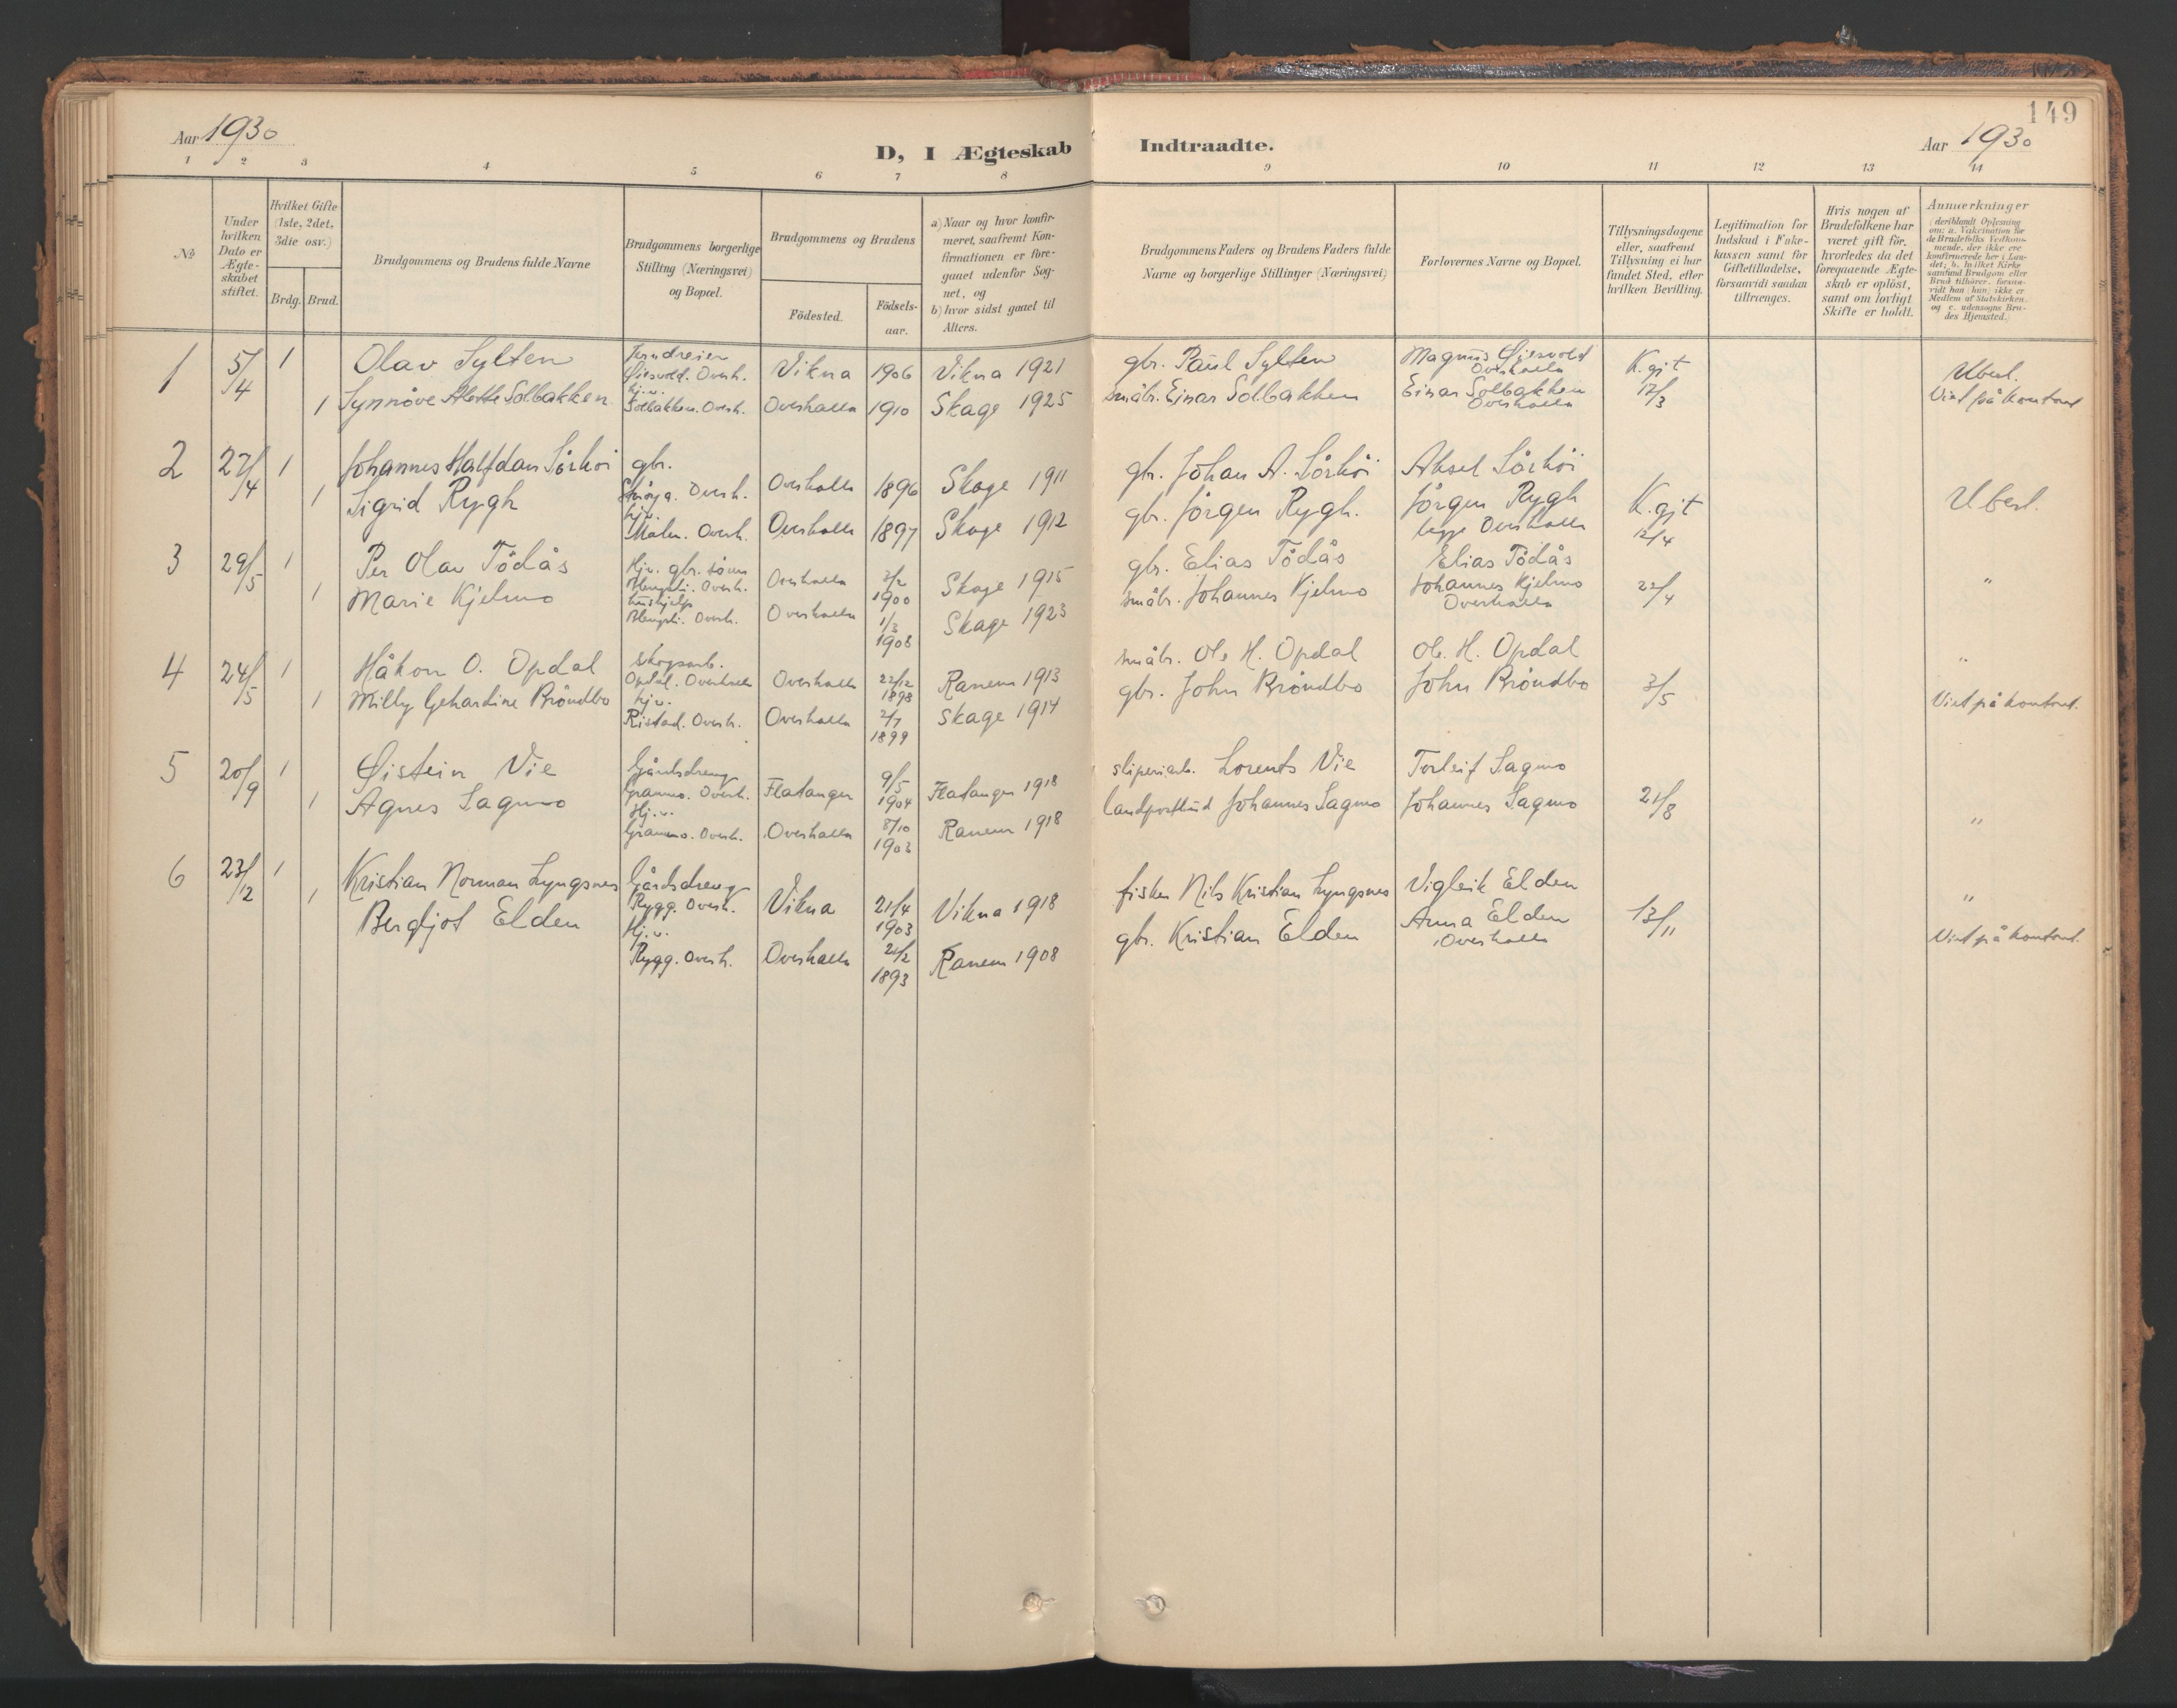 149
Aar 1930
D, I Ægteskab Indtraadte.
Aar 1930
1 2 3 4 5 6 7 8 9 10 11 12 13 14
No
Under hvilken Dato er Ægteskabet stiftet.
Hvilket Gifte (1ste, 2det, 3die osv.)
Brdg. Brud.
Brudgommens og Brudens fulde Navne
Brudgommens borgerlige Stilling (Næringsvei) og Bopæl.
Brudgommens og Brudens
Födested.
Födsels-aar.
a) Naar og hvor konfir-
meret, saafremt Kon-
firmationen er fore-
gaaet udenfor Sog-
net, og
b) hvor sidst gaaet til
Alters.
Brudgommens Faders og Brudens Faders fulde
Navne og borgerlige Stillinger (Næringsvei)
Forlovernes Navne og Bopæl.
Tillysningsdagene
eller, saafremt
Tillysning ei har
fundet Sted, efter
hvilken Bevilling.
Legitimation for
Indskud i Enke-
kassen samt for
Giftetilladelse,
forsaavidt saadan
tiltrænges.
Hvis nogen af
Brudefolkene har
været gift för,
hvorledes da det
foregaaende Ægte-
skab er oplöst,
samt om lovligt
Skifte er holdt.
Anmærkninger
(deriblandt Oplysning
om: a. Vakcination for
de Brudefolks Vedkom-
mende, der ikke ere
konfirmerede her i Lan-
det; b. hvilket Kirke-
samfund Brudgom eller
Brud tilhører, forsaa-
vidt han (hun) ikke er
Medlem af Statskirken,
og c. udensogns Bru-
des Hjemsted.)
1 5/4 1 Olav Sylten Jerndreier Øiesvold. Overh. Vikna 1906 Vikna 1921 gbr. Paul Sylten Magnus Øiesvold Overhalla K. gjt Ubesl.
1 Synnöve Alette Solbakken hj.v. Solbakken. Overh. Overhalla 1910 Skage 1925 småbr. Einar Solbakken Einar Solbakken Overhalla 12/3 Viet på kontoret
2 27/4 1 Johannes Halfdan Sörhöi gbr. Overh. Overhalla 1896 Skage 1911 gbr. Johan A. Sörhöi Aksel Sörhöi
1 Sigrid Rygh hj.v. Malm. Overh. Overhalla 1897 Skage 1912 gbr. Jörgen Rygh. Jörgen Rygh begge Overhalla K. gjt 12/4 Ubesl.
3 29/5 1 Per Olav Tödås Hj.v. gbr. sönn Overh. Overhalla 3/2 1900 Skage 1915 gbr. Elias Tödås Elias Tödås
1 Marie Kjelmo hushjelp Overh. Overhalla 1/3 1908 Skage 1923 småbr. Johannes Kjelmo Johannes Kjelmo Overhalla 22/4 "
4 24/5 1 Håkon O. Opdal skogsarb. Opdal. Overhalla Overhalla 22/12 1898 Ranem 1913 småbr. Ole H. Opdal Ole H. Opdal "
1 Milly Gehardine Bröndbo hj.v. Ristad. Overh. Overhalla 2/7 1899 Skage 1914 gbr. John Bröndbo John Bröndbo 3/5 Viet på kontoret.
5 20/9 1 Øistein Vie Gårdsdreng Grammo. Overh. Flatanger 9/5 1904 Flatanger 1918 sliperiarb. Lorents Vie Torleif Sagmo
1 Agnes Sagmo Hj.v. Grammo. Overh. Overhalla 8/10 1903 Ranem 1918 landpostbud Johannes Sagmo Johannes Sagmo 21/8 "
6 23/12 1 Kristian Norman Lyngsnes Gårdsdreng Rygg. Overh. Vikna 21/4 1903 Vikna 1918 fisker Nils Kristian Lyngsnes Vigleik Elden "
1 Bergljot Elden Hj.v. Rygg. Overh. Overhalla 21/2 1893 Ranem 1908 gbr. Kristian Elden Anna Elden Overhalla 13/11 Viet på kontoret.